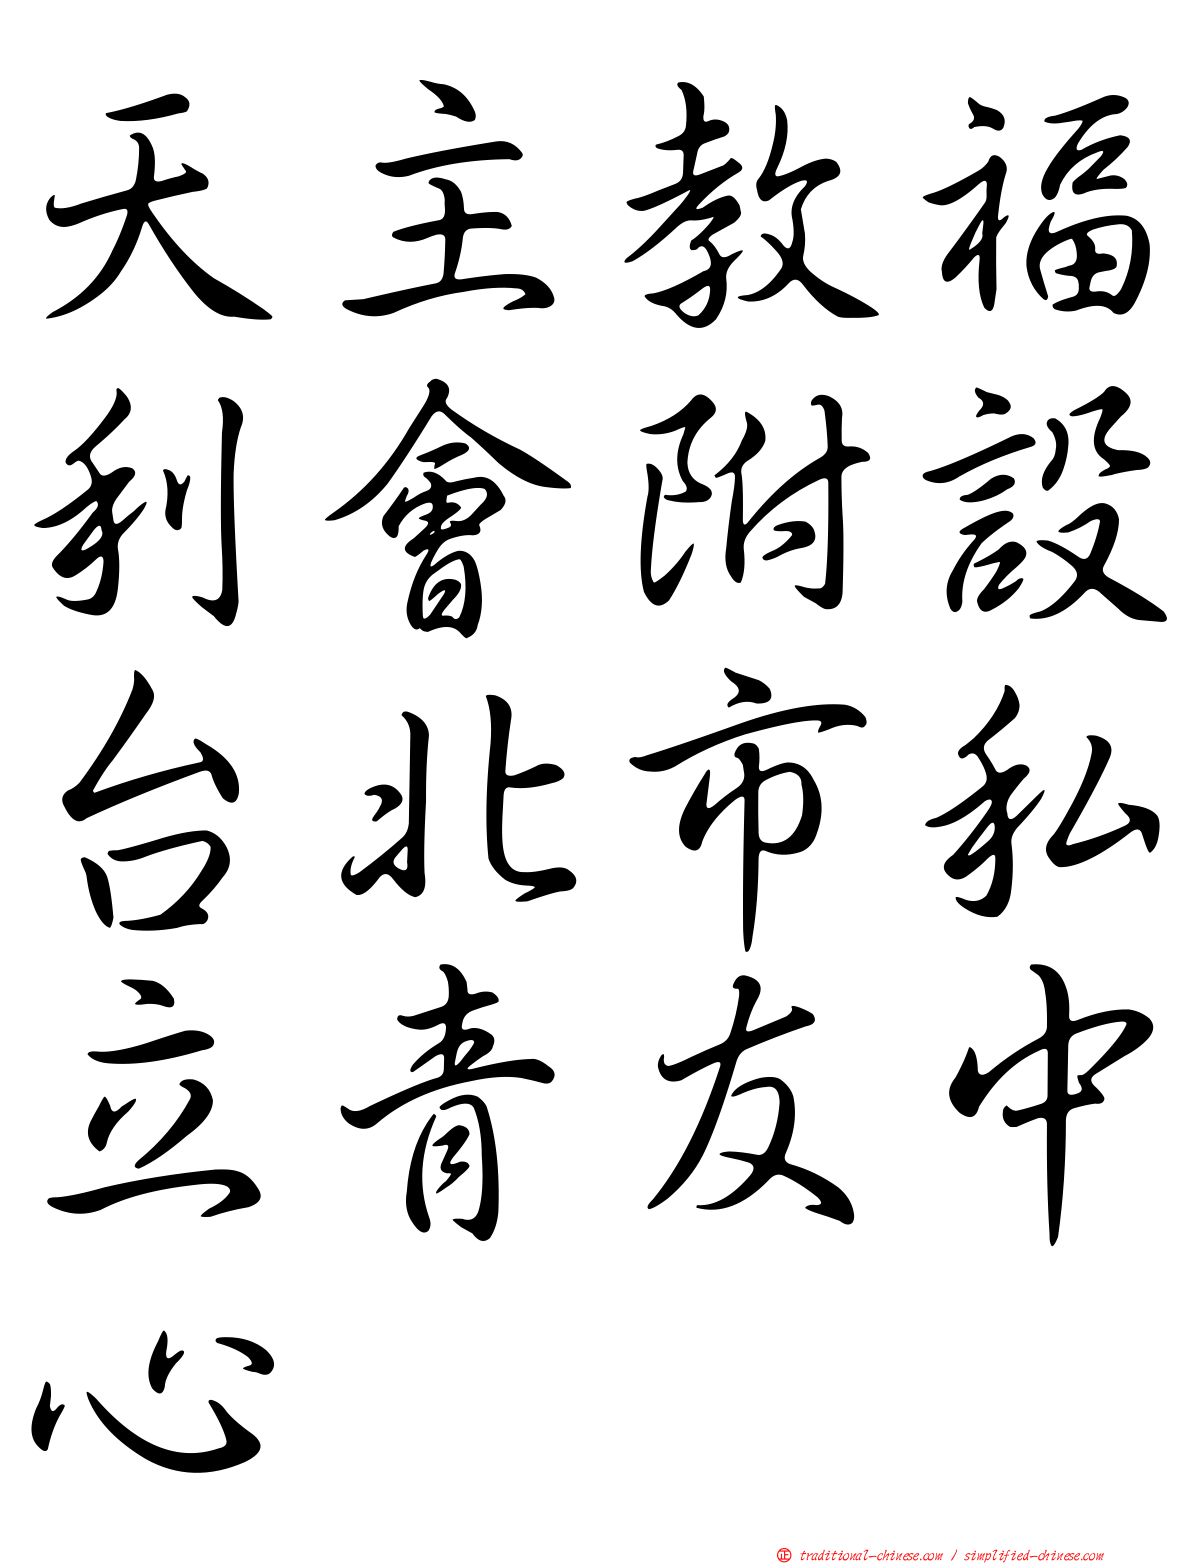 天主教福
利會附設
台北市私
立青友中
心
㊣ traditional-chinese.com / simplified-chinese.com